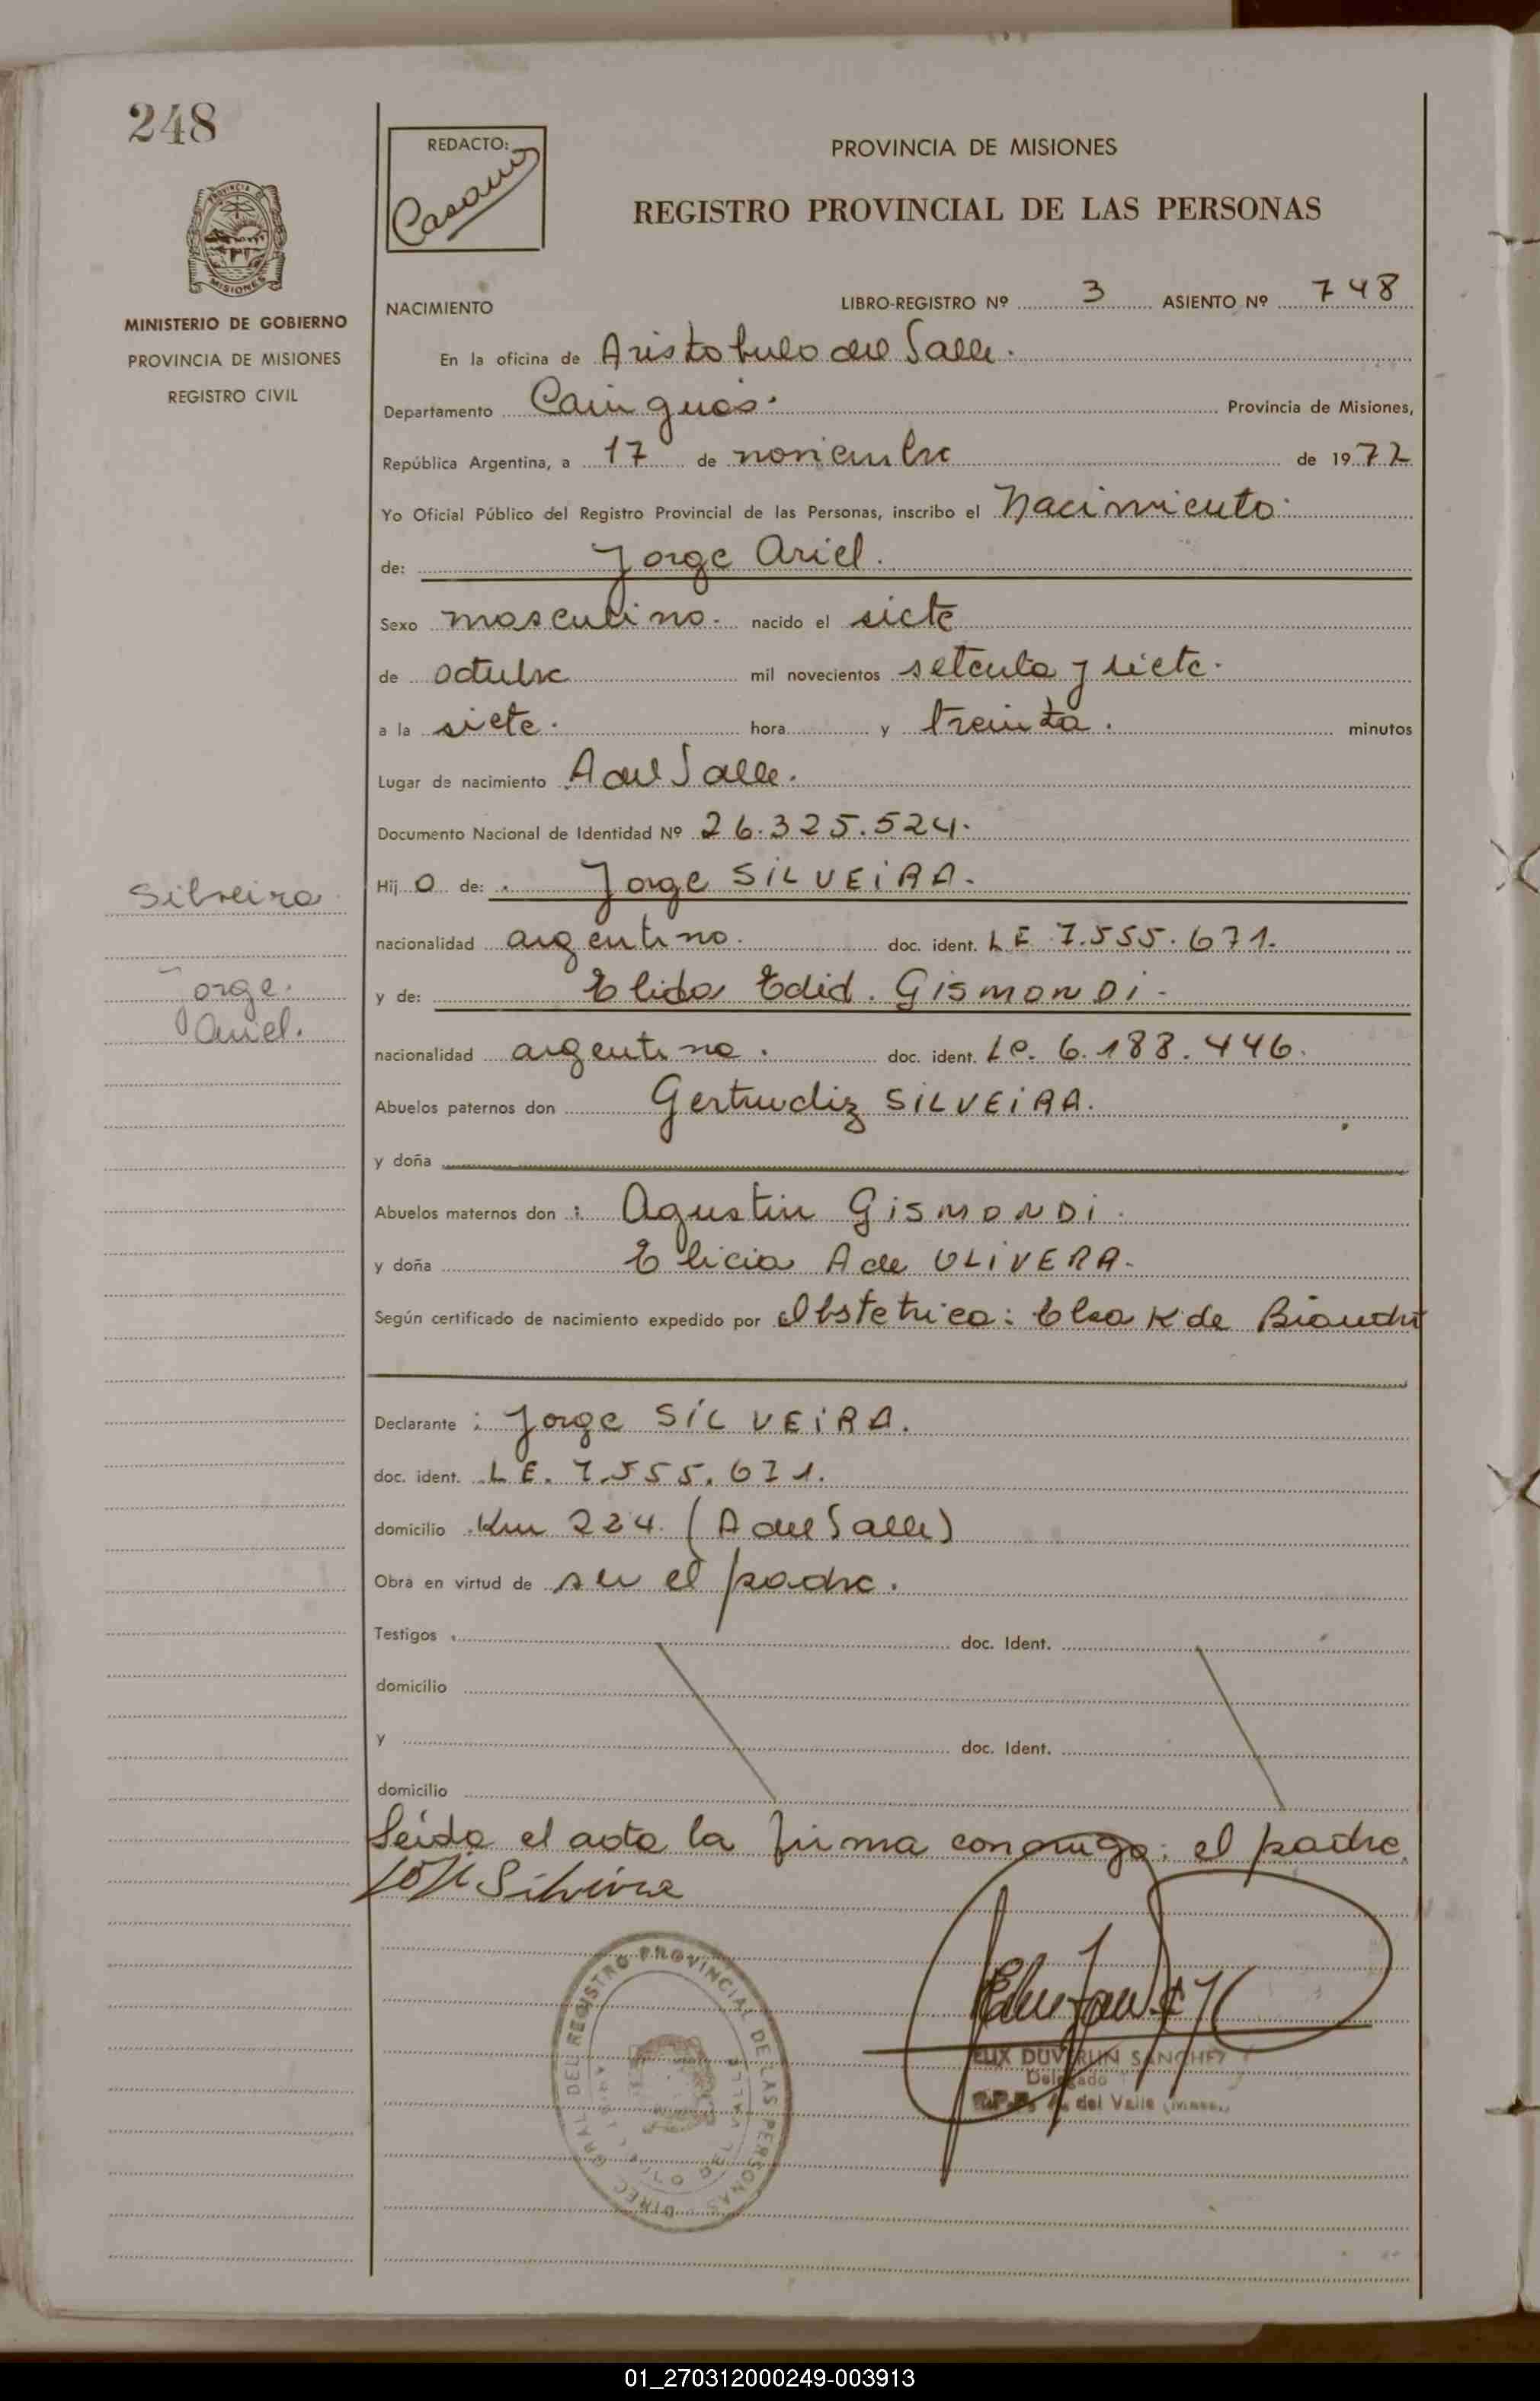 248
REDACTO:
Casano
PROVINCIA DE MISIONES
REGISTRO PROVINCIAL DE LAS PERSONAS
PROVINCIA DE
MISIONES
MINISTERIO DE GOBIERNO
PROVINCIA DE MISIONES
REGISTRO CIVIL
NACIMIENTO LIBRO-REGISTRO Nº 3 ASIENTO Nº 748
En la oficina de Aristobulo del Valle.
Departamento Cainguás. Provincia de Misiones,
República Argentina, a 17 de noviembre de 1977
Yo Oficial Público del Registro Provincial de las Personas, inscribo el Nacimiento
de: Jorge Ariel.
Sexo masculino. nacido el siete
de octubre mil novecientos setenta y siete.
a la siete. hora y treinta. minutos
Lugar de nacimiento A del Valle.
Documento Nacional de Identidad Nº 26.325.524.
Silveira
Hij o de: Jorge SILVEIRA.
nacionalidad argentino. doc. ident. LE 7.555.671.
Jorge.
Ariel.
y de: Elida Edid. GISMONDI.
nacionalidad argentina. doc. ident. Lc. 6.188.446.
Abuelos paternos don Gertrudiz SILVEIRA.
y doña
Abuelos maternos don : Agustin GISMONDI.
y doña Elicia A de OLIVERA.
Según certificado de nacimiento expedido por Obstetrica: Elsa K de Bianchi
Declarante : Jorge SILVEIRA.
doc. ident. LE. 7.555.671.
domicilio Km 224. (A del Valle)
Obra en virtud de ser el padre.
Testigos doc. Ident.
domicilio
y doc. Ident.
domicilio
Leída el acta la firma conmigo: el padre.
Silveira
DIREC. GRAL DEL REGISTRO PROVINCIAL DE LAS PERSONAS
DUVERLIN SANCHEZ
Delegado
R.P.P. A. del Valle
01_270312000249-003913